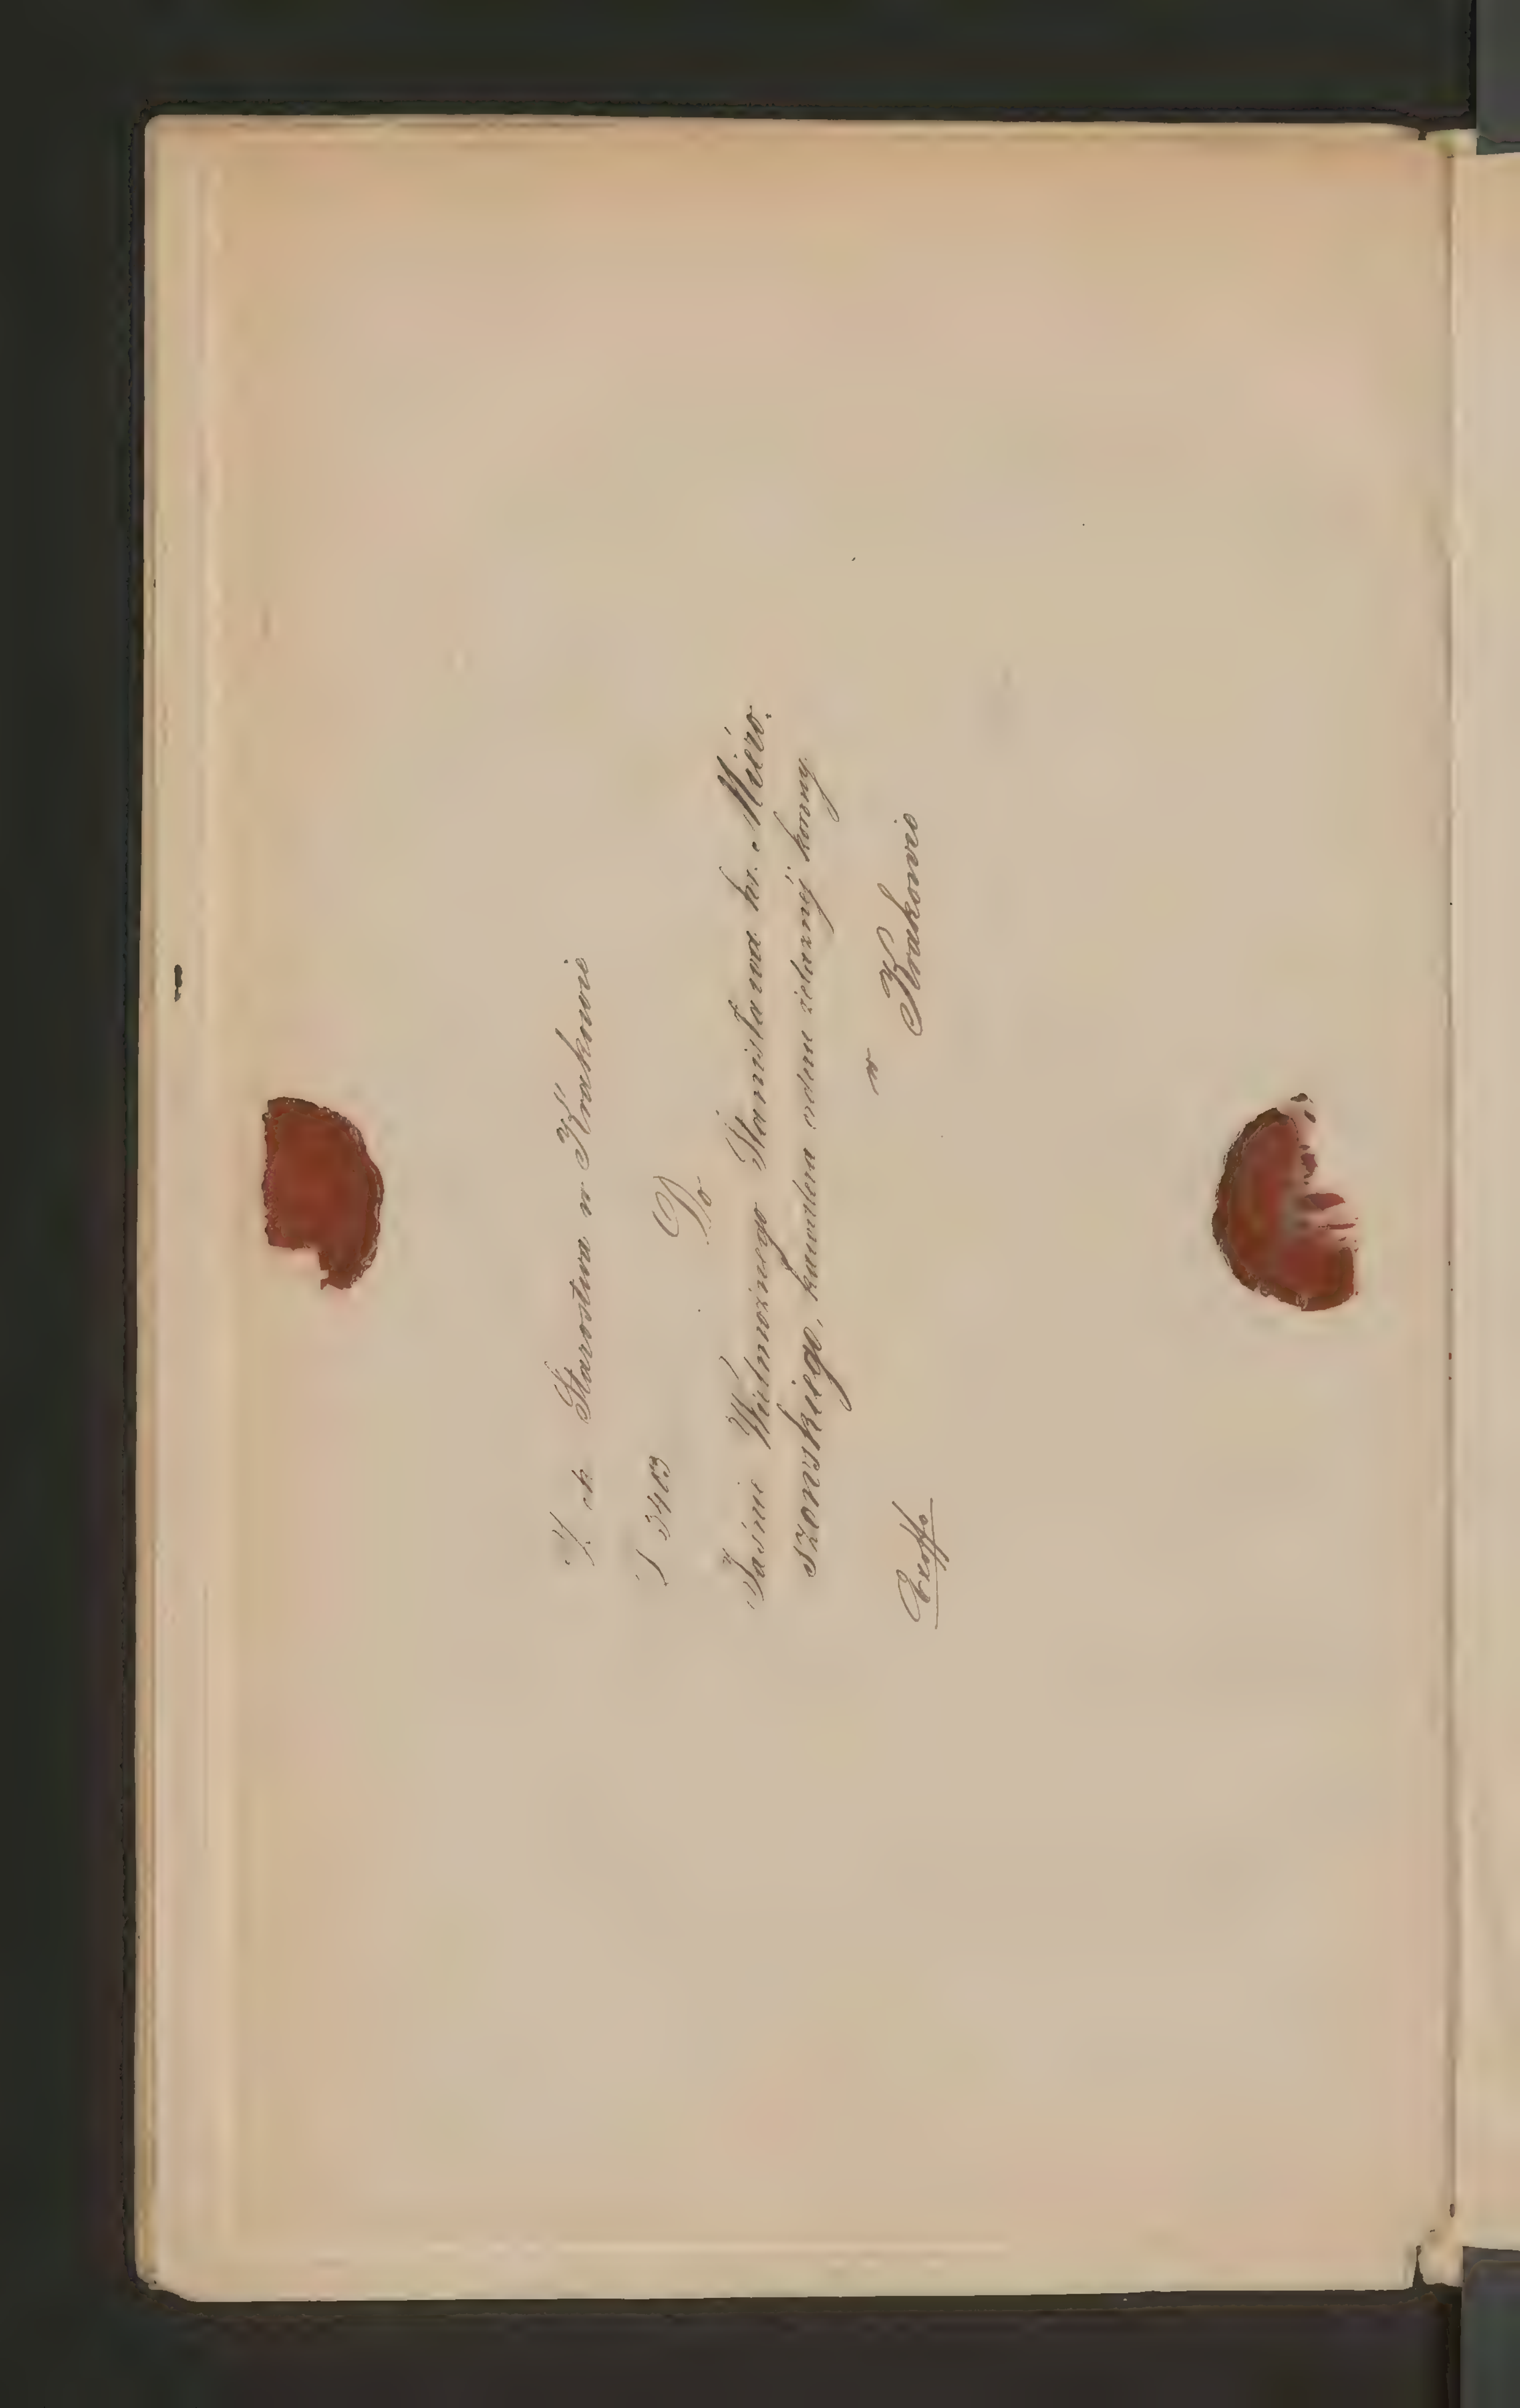 Z ck Starostwa w Krakowie
L 3403
Do
Jaśnie Wielmożnego Stanisława hr. Miero-
szowskiego, kawalera orderu żelaznej korony
w
Krakowie
Exoffo